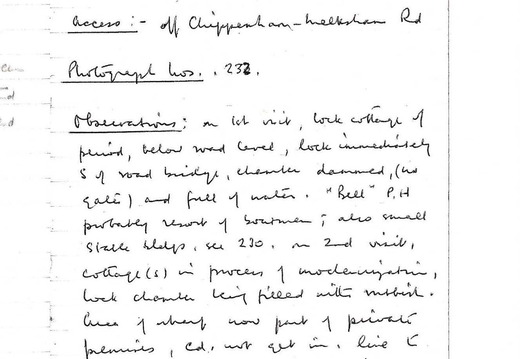 Access :- off Chippenham-Melksham Rd
Photograph Nos. . 232.
Observations : on 1st visit, lock cottage of
period, below road level, lock immediately
S of road bridge, chamber dammed, (no
gates) and full of water. "Bell" P.H
probably resort of boatmen; also small
stable bldgs. see 230. on 2nd visit,
cottage(s) in process of modernization,
lock chamber being filled with rubbish.
of wharf now part of private
premises, cd. not get in. line